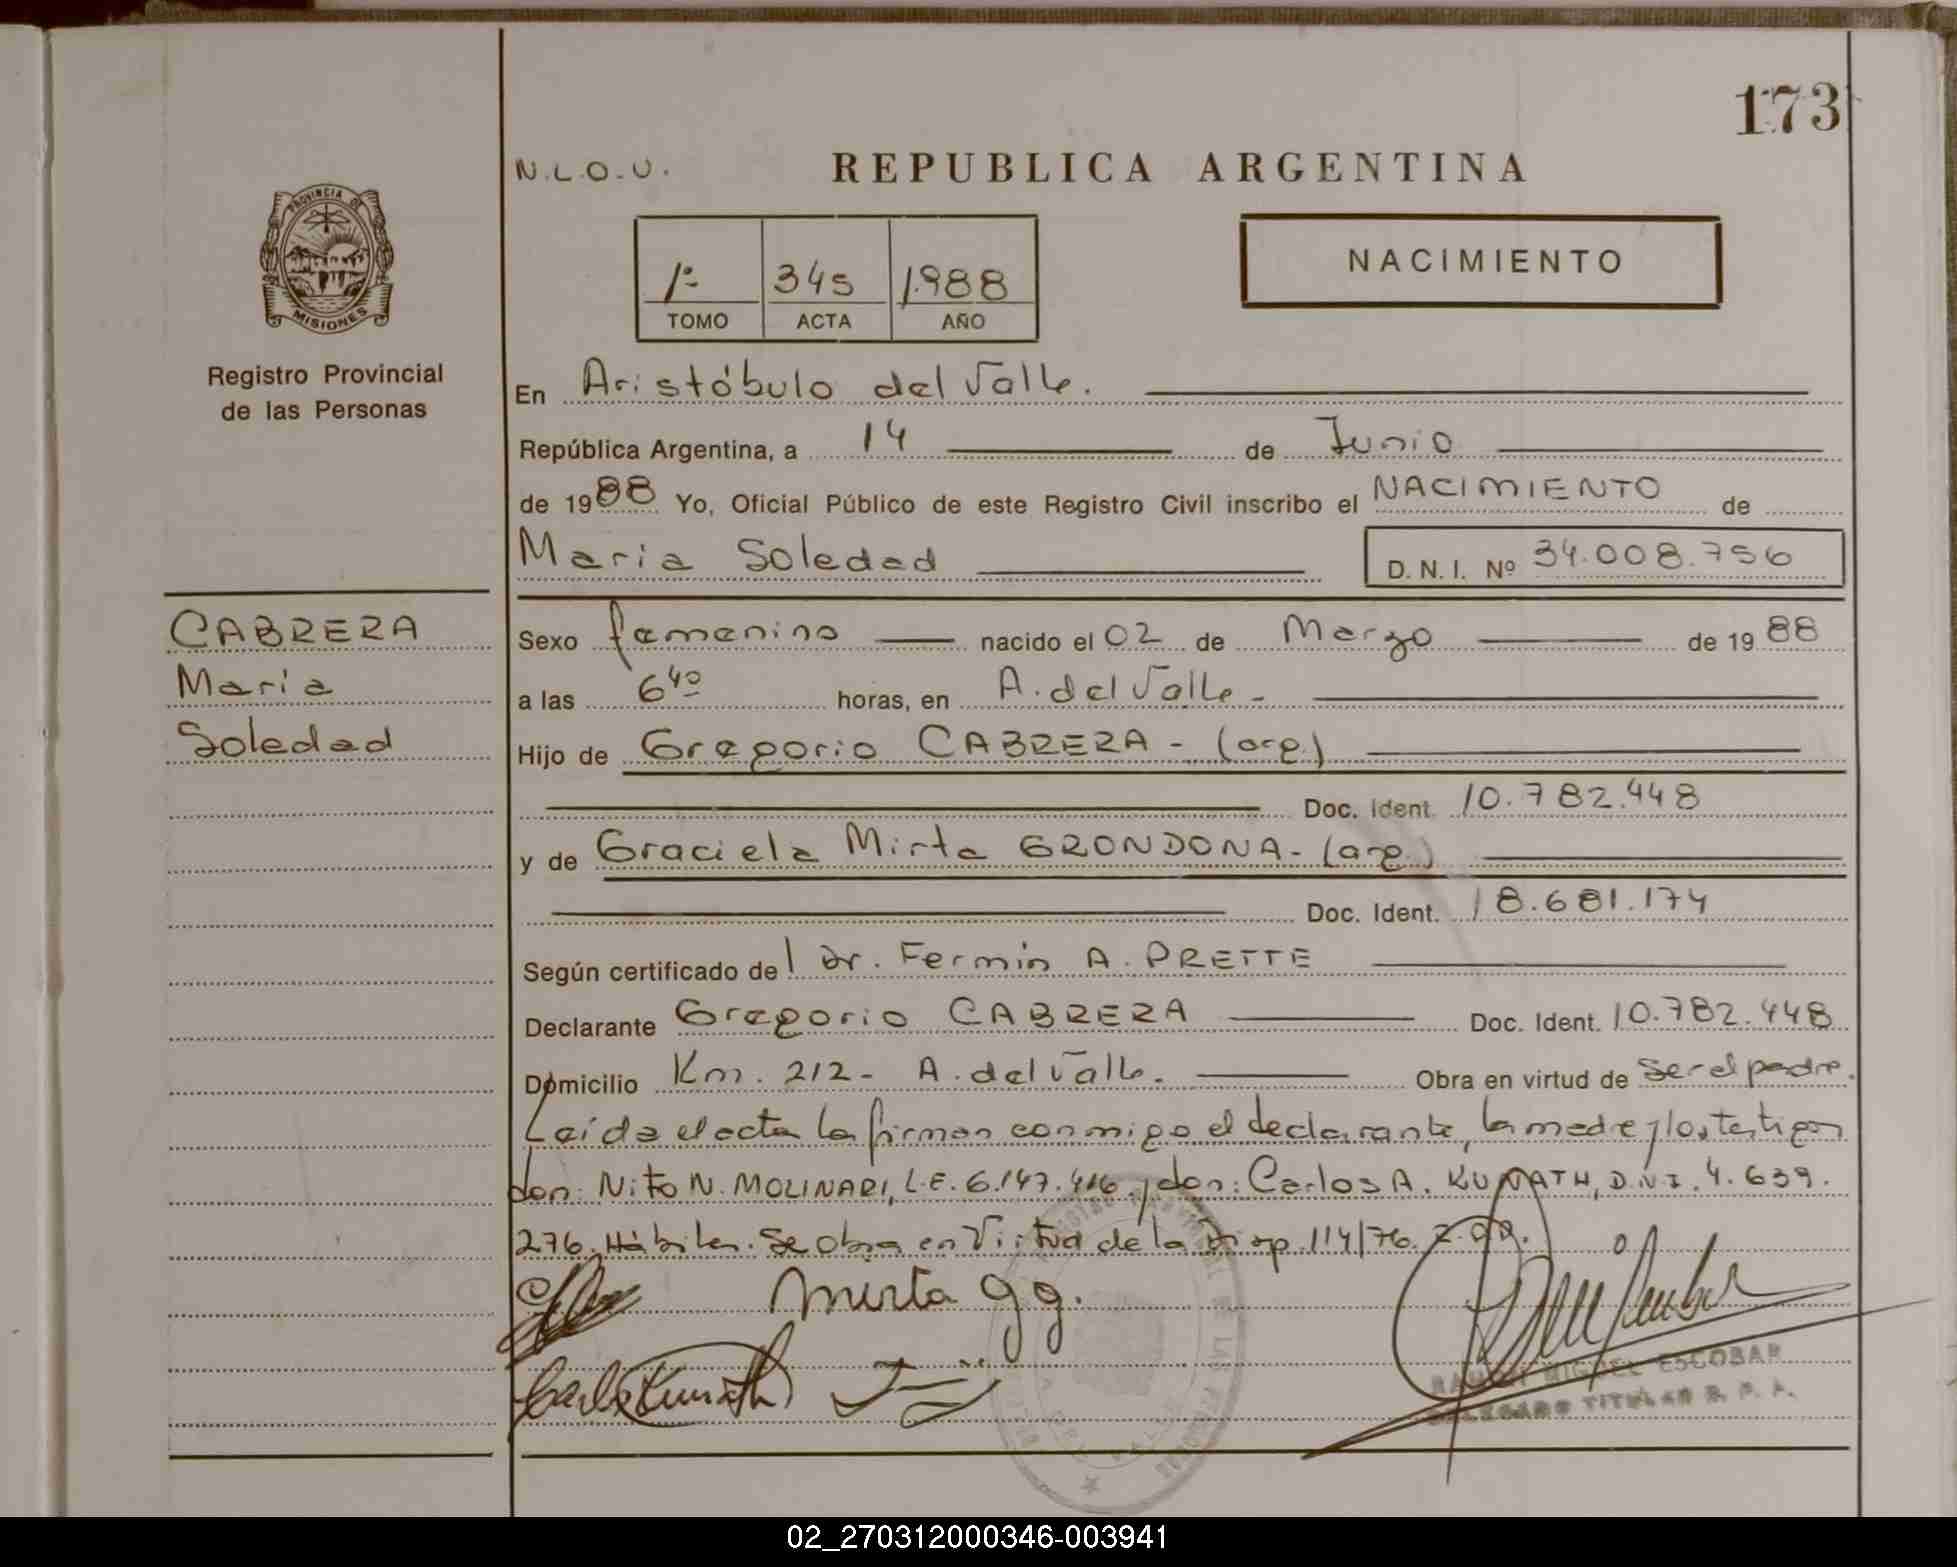 173
N.L.O.U.
REPUBLICA ARGENTINA
PROVINCIA DE
MISIONES
Registro Provincial
de las Personas
1º 345 1.988
TOMO ACTA AÑO
NACIMIENTO
En Aristóbulo del Valle.
República Argentina, a 14 de Junio
de 1988 Yo, Oficial Público de este Registro Civil inscribo el NACIMIENTO de
Maria Soledad D. N. I. Nº 34.008.756
CABRERA
Maria
Soledad
Sexo femenino nacido el 02 de Marzo de 1988
a las 6⁴⁰ horas, en A. del Valle -
Hijo de Gregorio CABRERA - (arg.)
Doc. Ident. 10.782.448
y de Graciela Mirta GRONDONA - (arg.)
Doc. Ident. 18.681.174
Según certificado del Dr. Fermin A. PRETTE
Declarante Gregorio CABRERA Doc. Ident. 10.782.448
Domicilio Km. 212 - A. del Valle. Obra en virtud de ser el padre.
Leida el acta la firman conmigo el declarante, la madre y los testigos
don: Nito N. MOLINARI, L.E. 6.147.416 y don: Carlos A. KUNATH, D.N.I. 4.639.
276. Hábiles. Se obra en Virtud de la Disp. 114/76.
Mirta g g.
Carlos Kunath
RAMON MIGUEL ESCOBAR
DELEGADO TITULAR R. P. P.
02_270312000346-003941